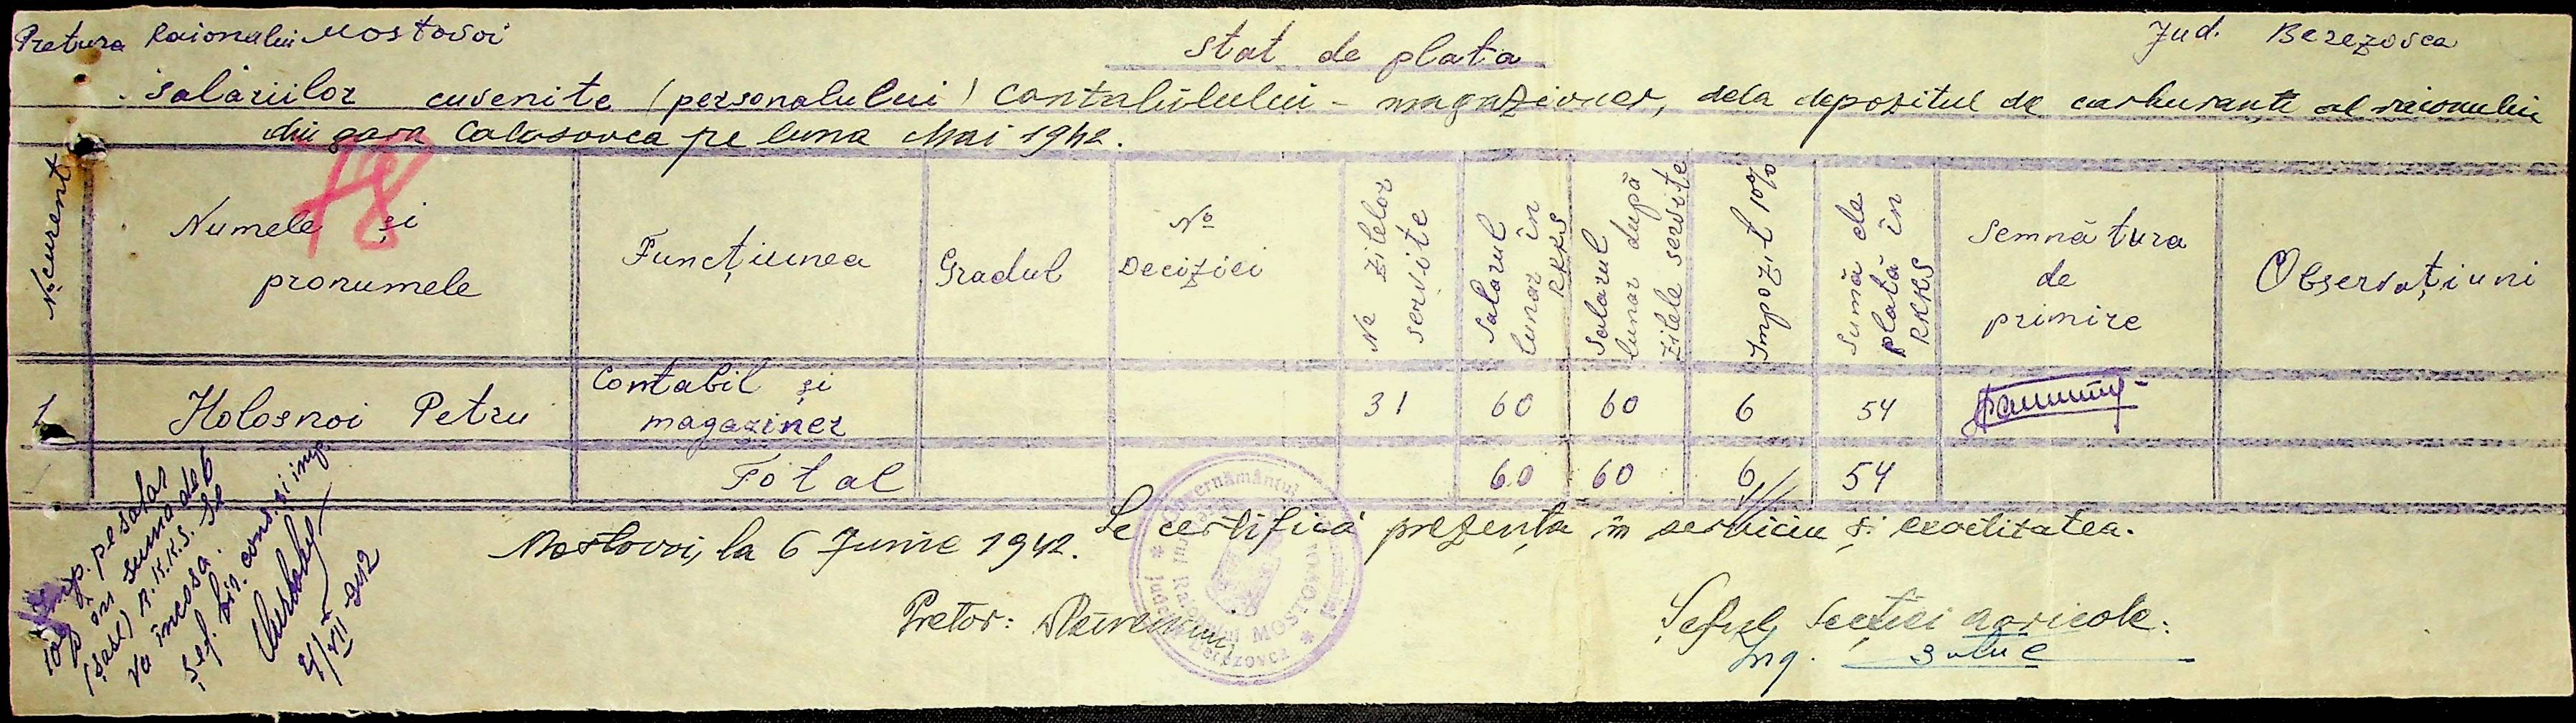 Pretura Raionului Mostovoi
Jud. Berezovca
Stat de plata
salariilor cuvenite (personalului) contabilului - magazioner, dela depozitul de carburanți al raionului
din gara Colosovca pe luna Mai 1942.
18
No curent
Numele și
pronumele
Funcțiunea
Gradul
No
Deciziei
No zilelor
servite
Salarul
lunar în
RKKS
Salarul
lunar după
zilele servite
Impozit 10%
Sumă de
plată în
RKKS
Semnătura
de
primire
Observațiuni
1
Holosnoi Petru
Contabil și
magaziner
31
60
60
6
54
Total
60
60
6
54
Mostovoi, la 6 Junie 1942.
Se certifică prezența în serviciu și exactitatea.
Pretor:
Șeful Secției agricole:
Ing.
Guvernământul
Raionului MOSTOVOI
Județul Berezovca
10% imp. pe salar
în suma de 6
(șase) R.K.K.S. se
va încasa.
Șef. bir. cons. și imp